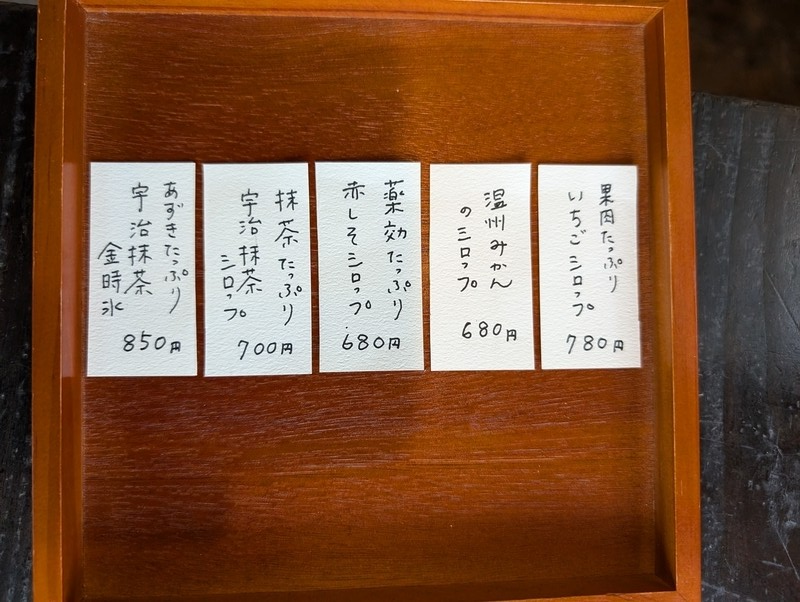 果肉たっぷり
いちごシロップ
780円
温州みかん
のシロップ
680円
薬効たっぷり
赤しそシロップ
680円
抹茶たっぷり
宇治抹茶
シロップ
700円
あずきたっぷり
宇治抹茶
金時氷
850円